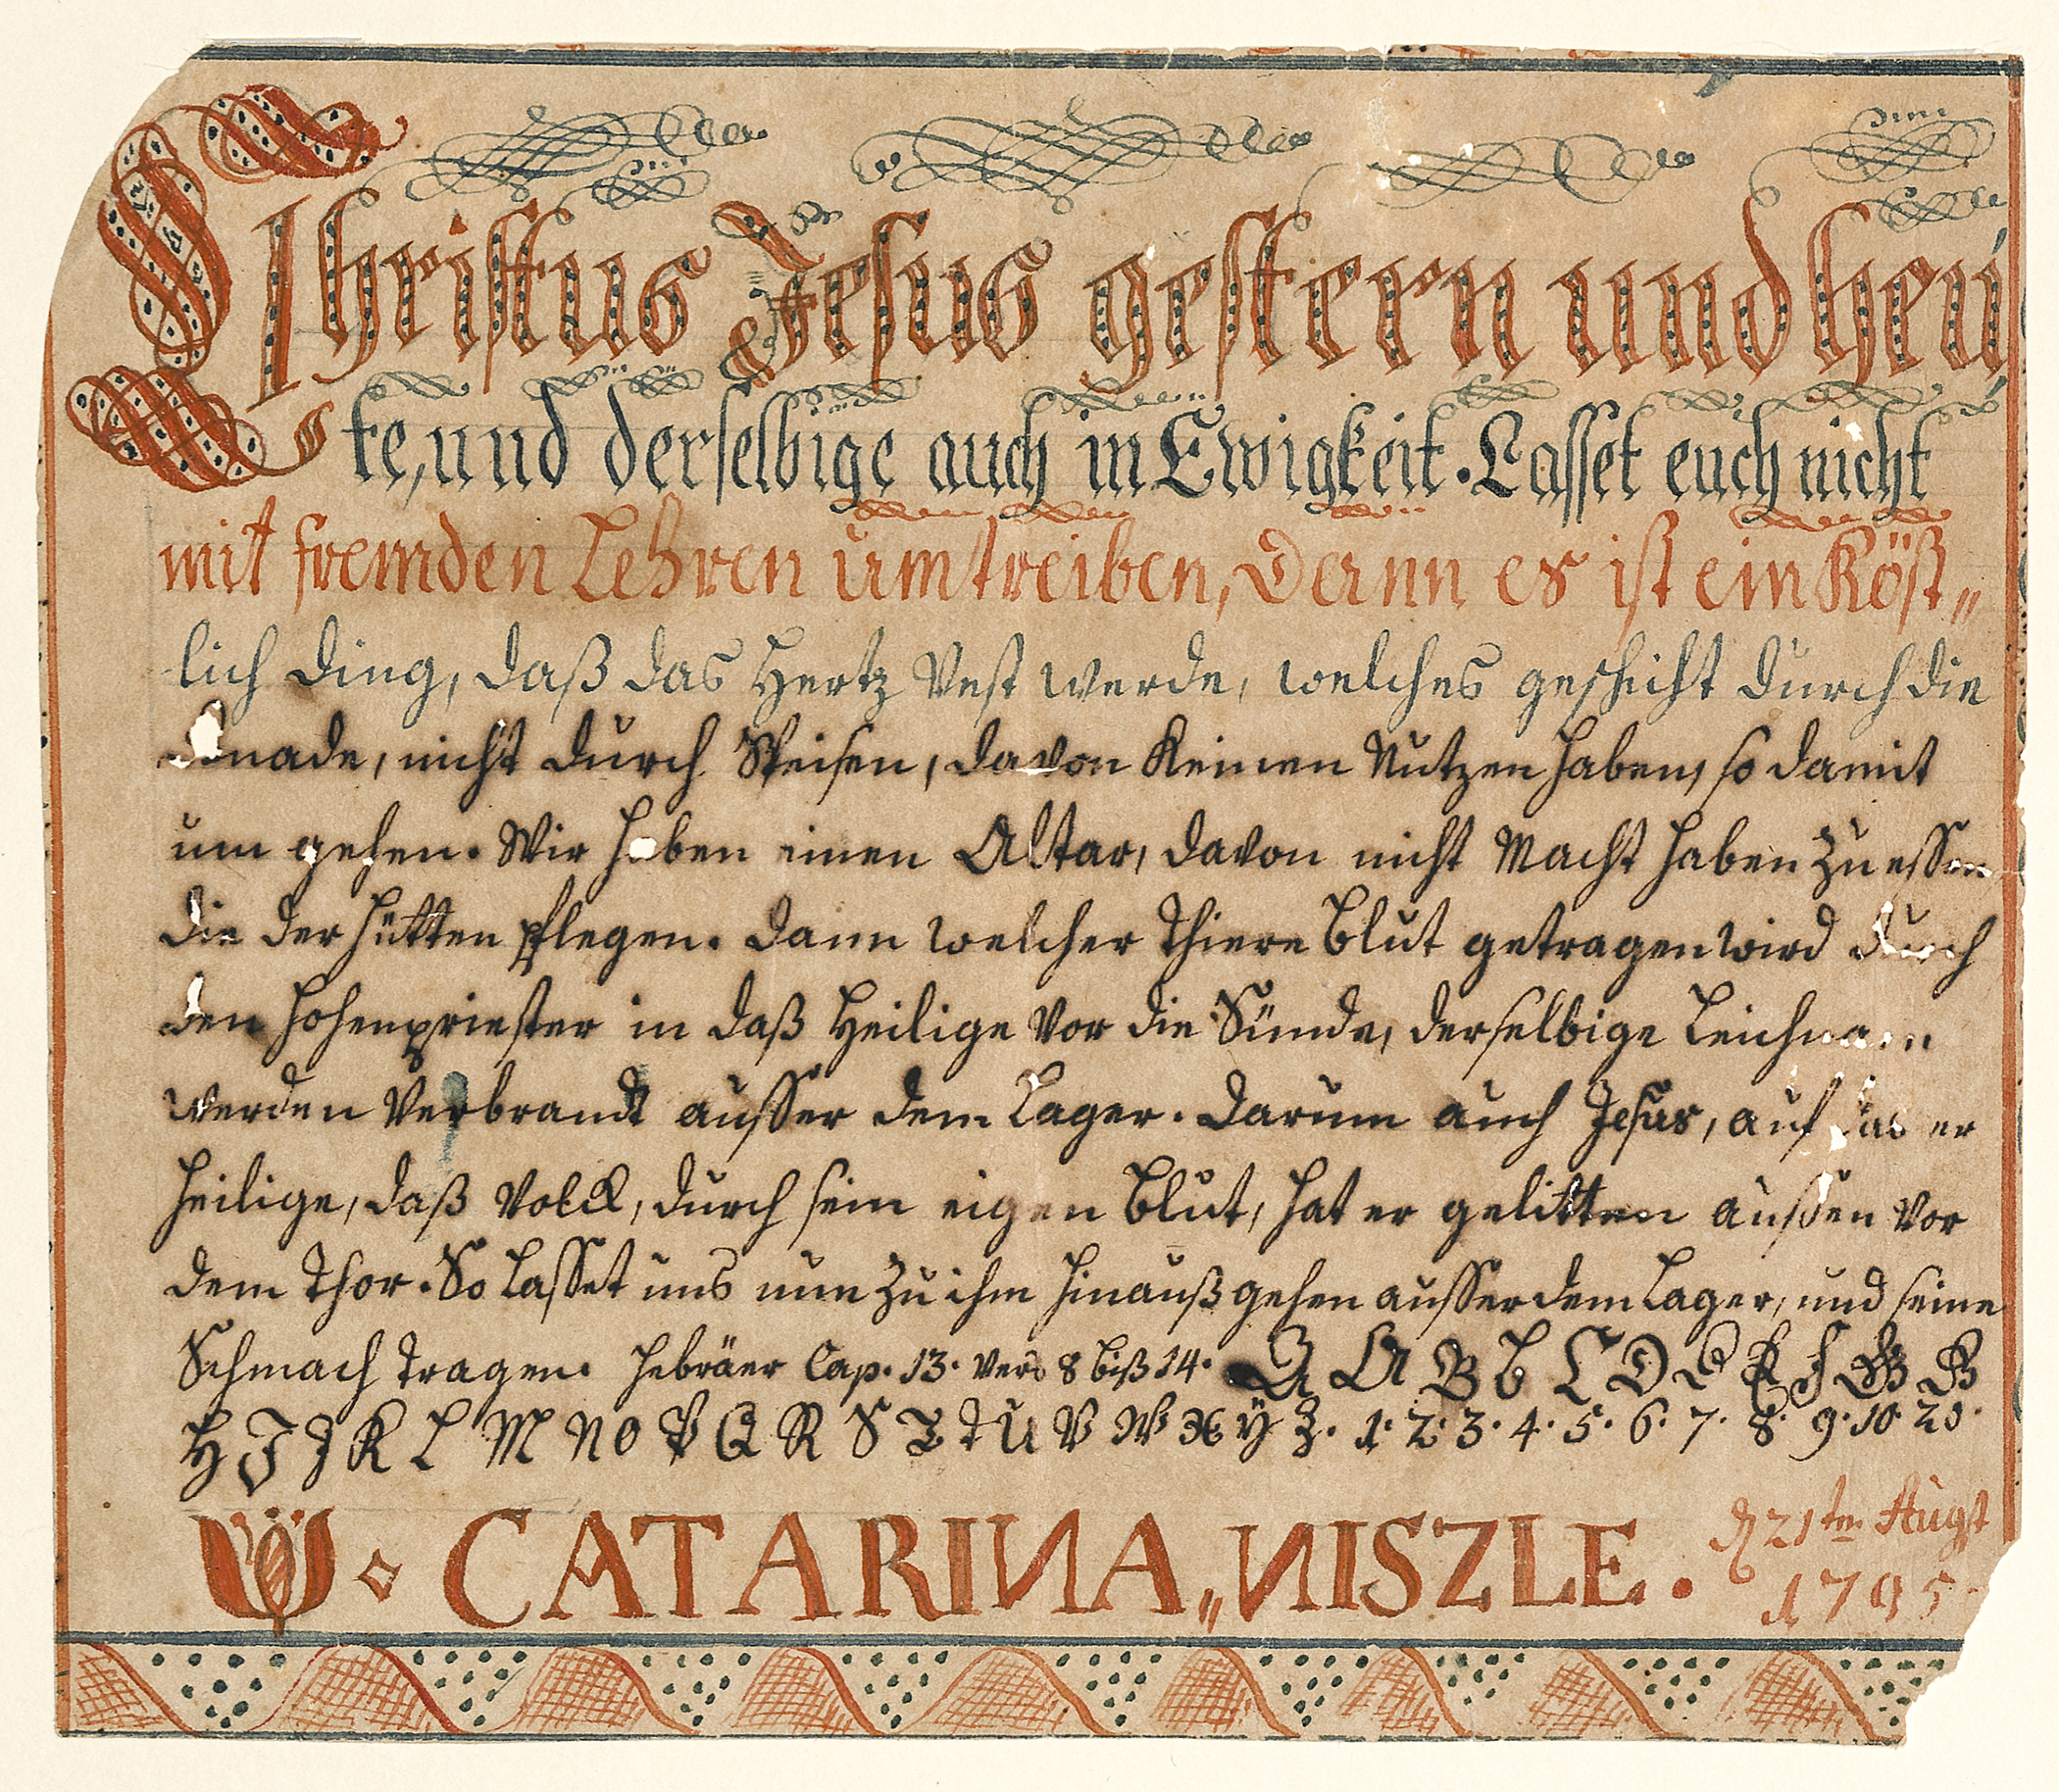 Christus Jesus gestern und heú
te, und derselbige auch in Ewigkeit. Lasset euch nicht
mit fremden Lehren umtreiben, Dann es ist ein Köst„
lich Ding, daß das Hertz Vest werde, welches geschicht durch die
Gnade, nicht durch Speisen, davon Keinen Nutzen haben, so damit
um gehen. Wir haben einen Altar, davon nicht Macht haben zu essen
die der Hütten pflegen. Dann welcher Thiere Blut getragen wird durch
den Hohenpriester in daß Heilige vor die Sünde, derselbige Leichnam
werden Verbrandt ausser dem Lager. Darum auch Jesus, auf das er
heilige, daß Volck, durch sein eigen Blut, hat er gelitten aussen vor
dem Thor. So Lasset uns nun zu ihm hinauß gehen ausser dem Lager, und seine
Schmach tragen. Hebräer Cap. 13. Vers 8 biß 14. A A B b C D E E F G G
H I J K L M N O P Q R S T T U V W X Y Z. 1. 2. 3. 4. 5. 6. 7. 8. 9. 10 20.
CATARINA„NISZLE. d 21ten Augst
1795